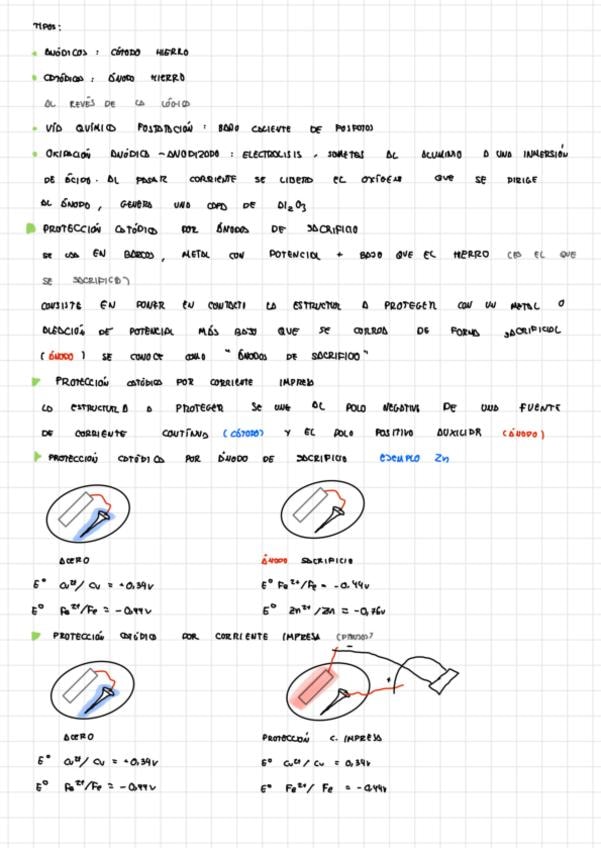 TIPOS:
ANÓDICOS: CÁTODO HIERRO
CATÓDICOS: ÁNODO HIERRO
AL REVÉS DE LA LÓGICA
VÍA QUÍMICA FOSFATACIÓN: BAÑO CALIENTE DE FOSFATOS
OXIDACIÓN ANÓDICA - ANODIZADO: ELECTROLISIS, SOMETES AL ALUMINIO A UNA INMERSIÓN
DE ÁCIDOS. AL PASAR CORRIENTE SE LIBERA EL OXÍGENO QUE SE DIRIGE
AL ÁNODO, GENERA UNA CAPA DE Al2O3
PROTECCIÓN CATÓDICA POR ÁNODOS DE SACRIFICIO
SE USA EN BARCOS, METAL CON POTENCIAL + BAJO QUE EL HIERRO (ES EL QUE
SE SACRIFICA)
CONSISTE EN PONER EN CONTACTO LA ESTRUCTURA A PROTEGER CON UN METAL O
ALEACIÓN DE POTENCIAL MÁS BAJO QUE SE CORROA DE FORMA SACRIFICIAL
(ÁNODO) SE CONOCE COMO "ÁNODOS DE SACRIFICIO"
PROTECCIÓN CATÓDICA POR CORRIENTE IMPRESA
LA ESTRUCTURA A PROTEGER SE UNE AL POLO NEGATIVO DE UNA FUENTE
DE CORRIENTE CONTINUA (CÁTODO) Y EL POLO POSITIVO AUXILIAR (ÁNODO)
PROTECCIÓN CATÓDICA POR ÁNODO DE SACRIFICIO EJEMPLO Zn
ACERO
E° Cu2+/Cu = +0,34V
E° Fe2+/Fe = -0,44V
ÁNODO SACRIFICIO
E° Fe2+/Fe = -0,44V
E° Zn2+/Zn = -0,76V
PROTECCIÓN CATÓDICA POR CORRIENTE IMPRESA
-
+
ACERO
E° Cu2+/Cu = +0,34V
E° Fe2+/Fe = -0,44V
PROTECCIÓN C. IMPRESA
E° Cu2+/Cu = 0,34V
E° Fe2+/Fe = -0,44V